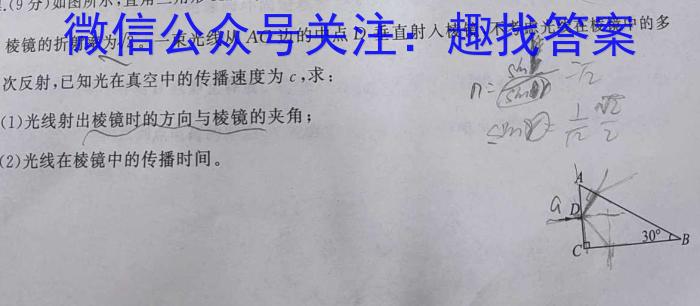 .(9分)如图所示,直角三角形
棱镜的折射率为√2。一束光线从AC边的中点D垂直射入棱镜,不考虑光线在棱镜中的多
微信公众号关注：趣找答案
次反射,已知光在真空中的传播速度为c,求:
(1)光线射出棱镜时的方向与棱镜的夹角;
(2)光线在棱镜中的传播时间。
n=
sin
=√2
sin
=
1
√2
√2
2
A
a
D
30°
B
C